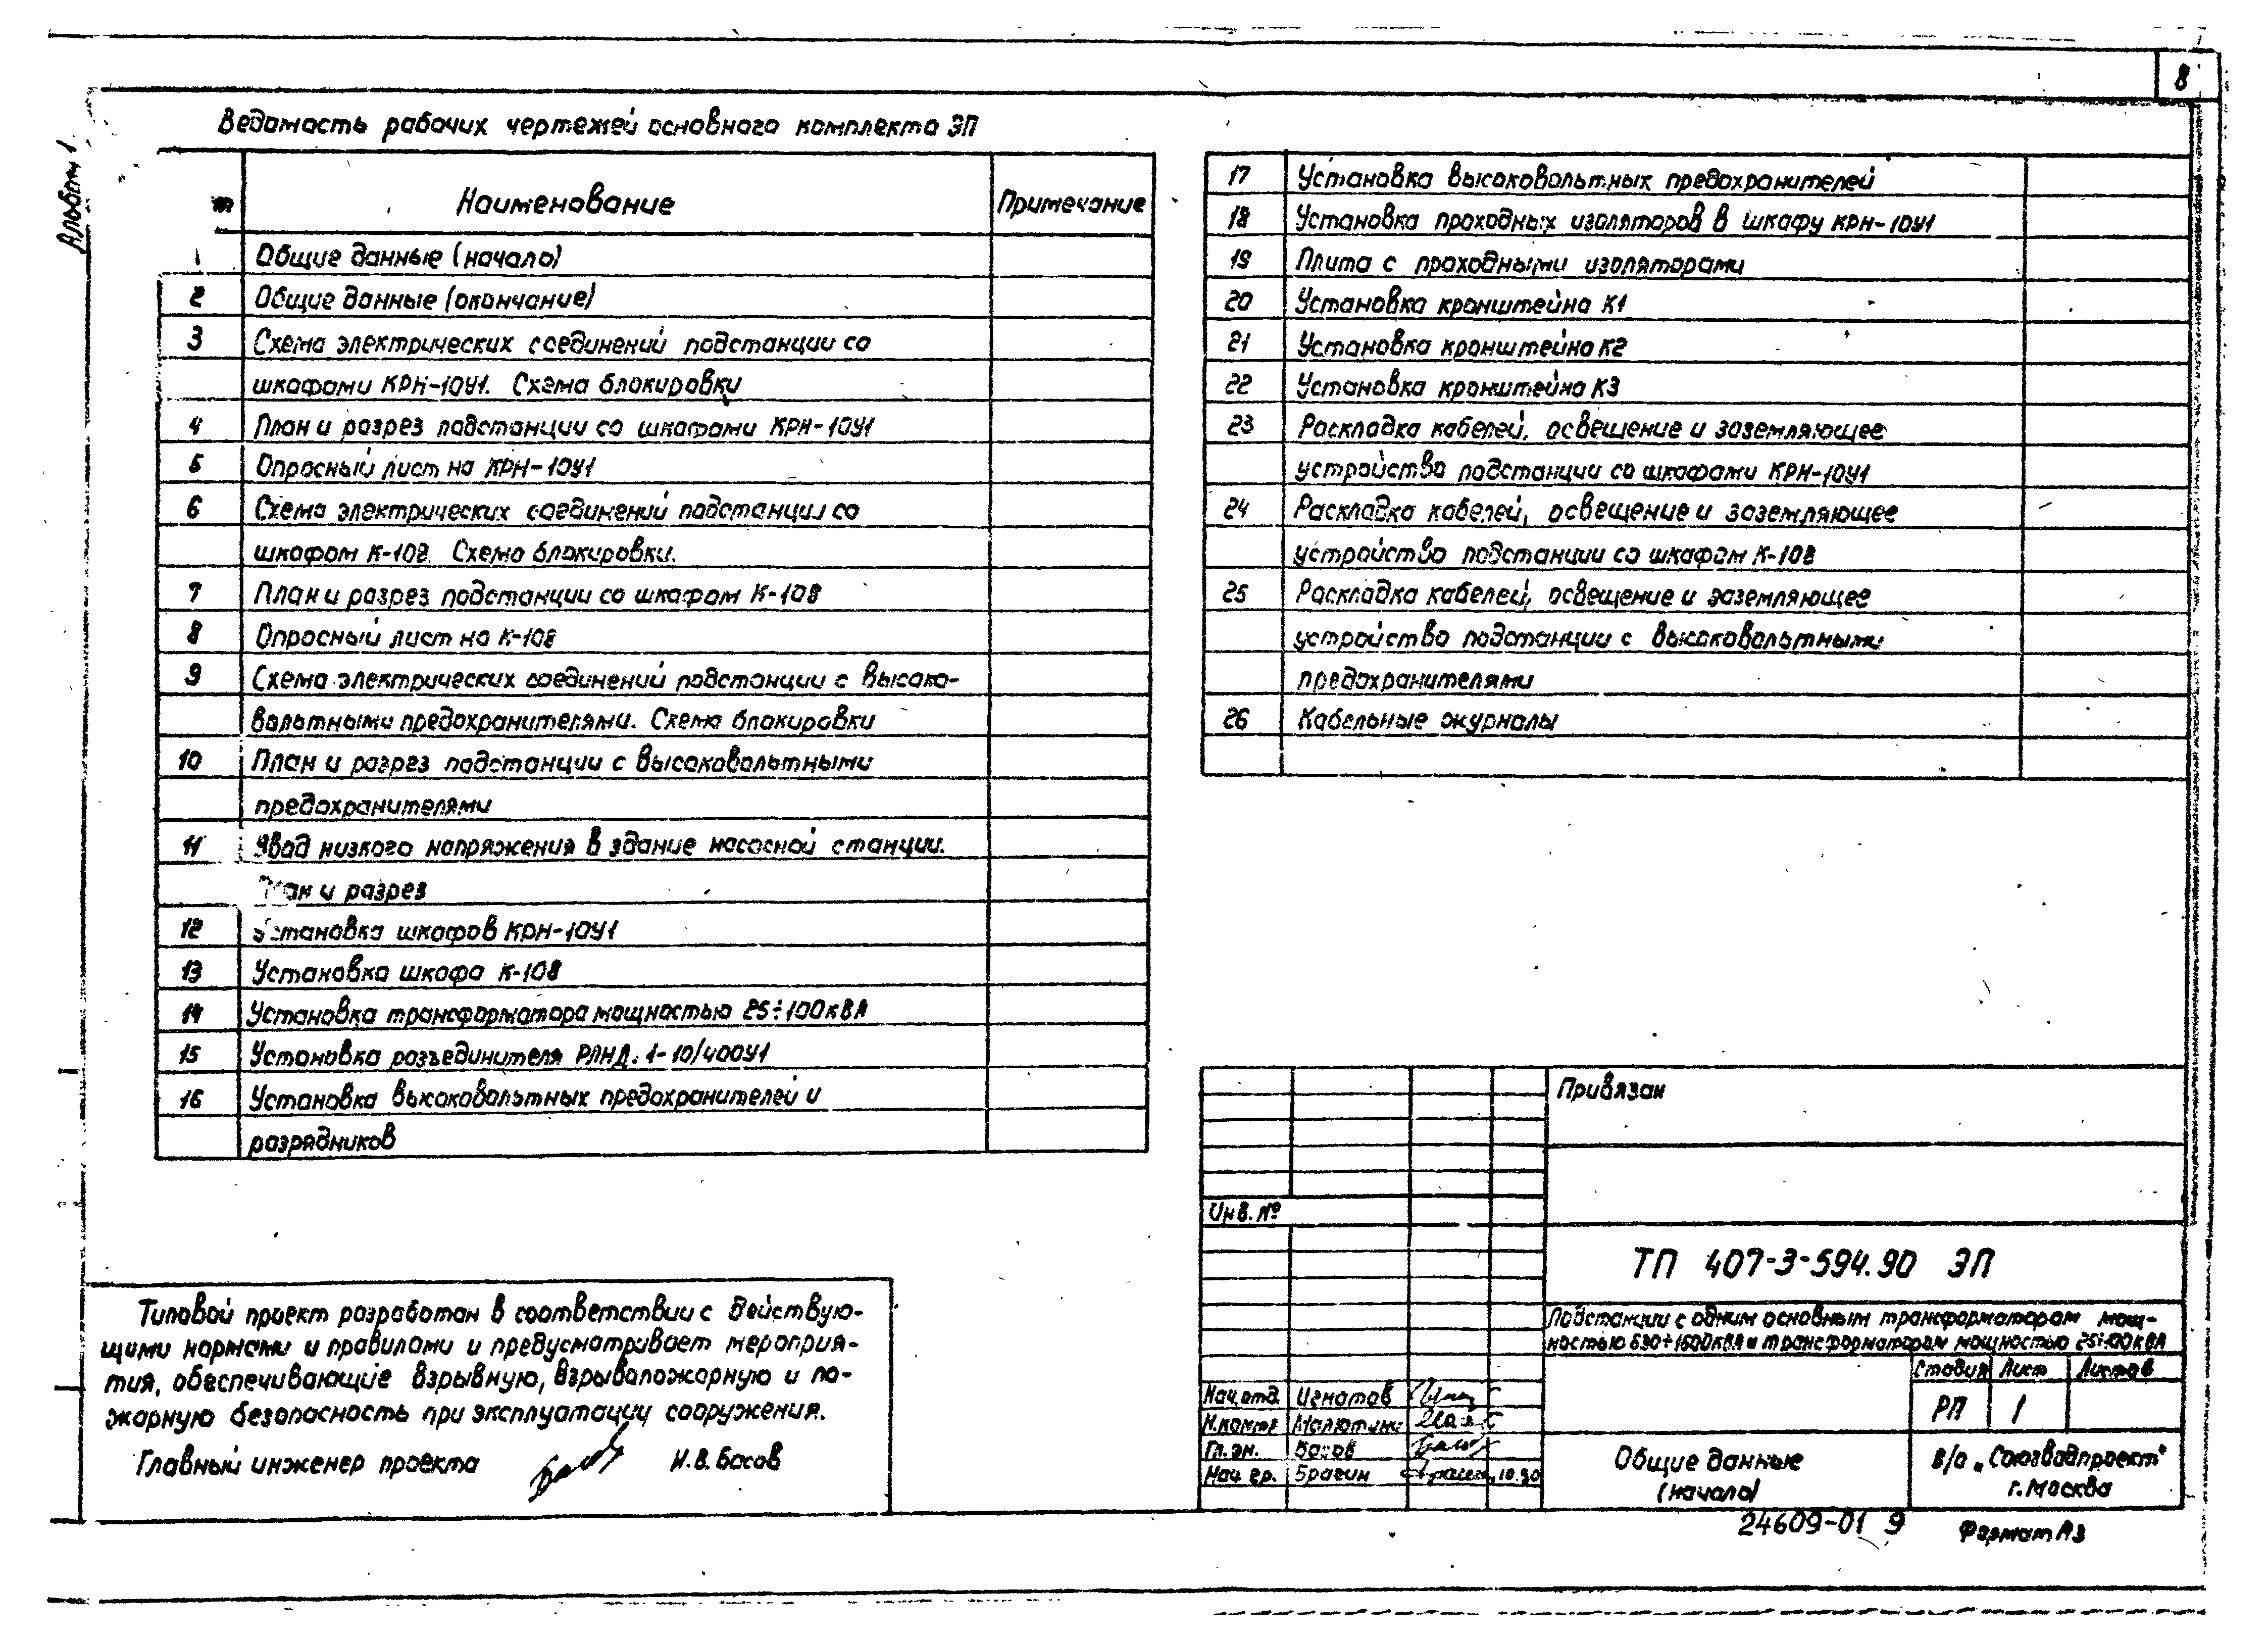 8
Альбом 1
Ведомость рабочих чертежей основного комплекта ЭП
Наименование
Примечание
Общие данные (начало)
2 Общие данные (окончание)
3 Схема электрических соединений подстанции со
шкафами КРН-10У1. Схема блокировки
4 План и разрез подстанции со шкафами КРН-10У1
5 Опросный лист на КРН-10У1
6 Схема электрических соединений подстанции со
шкафом К-108. Схема блокировки.
7 План и разрез подстанции со шкафом К-108
8 Опросный лист на К-108
9 Схема электрических соединений подстанции с высоко-
вольтными предохранителями. Схема блокировки
10 План и разрез подстанции с высоковольтными
предохранителями
11 Ввод низкого напряжения в здание насосной станции.
План и разрез
12 Установка шкафов КРН-10У1
13 Установка шкафа К-108
14 Установка трансформатора мощностью 25÷100кВА
15 Установка разъединителя РЛНД.1-10/400У1
16 Установка высоковольтных предохранителей и
разрядников
17 Установка высоковольтных предохранителей
18 Установка проходных изоляторов в шкафу КРН-10У1
19 Плита с проходными изоляторами
20 Установка кронштейна К1
21 Установка кронштейна К2
22 Установка кронштейна К3
23 Раскладка кабелей, освещение и заземляющее
устройство подстанции со шкафами КРН-10У1
24 Раскладка кабелей, освещение и заземляющее
устройство подстанции со шкафом К-108
25 Раскладка кабелей, освещение и заземляющее
устройство подстанции с высоковольтными
предохранителями
26 Кабельные журналы
Типовой проект разработан в соответствии с действую-
щими нормами и правилами и предусматривает мероприя-
тия, обеспечивающие взрывную, взрывопожарную и по-
жарную безопасность при эксплуатации сооружения.
Главный инженер проекта Н.В. Басов
Привязан
Инв. №
ТП 407-3-594.90 ЭП
Подстанции с одним основным трансформатором мощ-
ностью 630÷1600кВА и трансформатором мощностью 25÷100кВА
Стадия Лист Листов
РП 1
Нач.отд. Игнатов
Н.контр Малютина
Гл. эн. Басов
Нач. гр. Брагин 10.90
Общие данные
(начало)
В/о „Союзводпроект"
г. Москва
24609-01 9
Формат А3